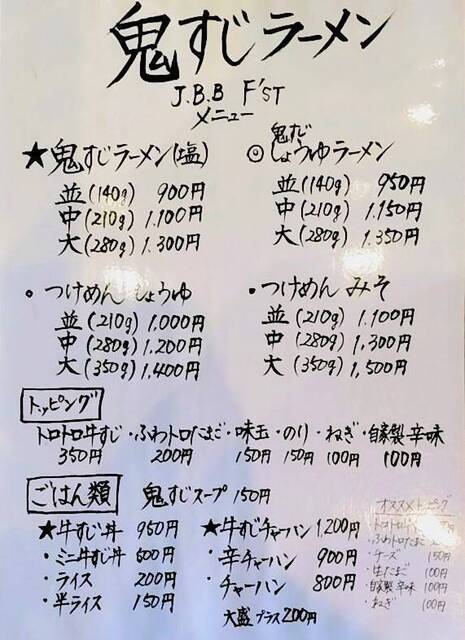 鬼すじラーメン
J.B.B F'ST
メニュー
★鬼すじラーメン(塩)
並(140g) 900円
中(210g) 1.100円
大(280g) 1.300円
◎鬼すじしょうゆラーメン
並(140g) 950円
中(210g) 1.150円
大(280g) 1.350円
・つけめん しょうゆ
並(210g) 1.000円
中(280g) 1.200円
大(350g) 1.400円
・つけめん みそ
並(210g) 1.100円
中(280g) 1.300円
大(350g) 1,500円
トッピング
トロトロ牛すじ・ふわトロたまご・味玉・のり・ねぎ・自家製辛味
350円 200円 150円 150円 100円 100円
ごはん類 鬼すじスープ 150円
★牛すじ丼 950円
・ミニ牛すじ丼 500円
・ライス 200円
・半ライス 150円
★牛すじチャーハン 1,200円
・辛チャーハン 900円
・チャーハン 800円
大盛プラス200円
オススメトッピング
・ふわトロたまご
・チーズ 150円
・生たまご 100円
・自家製辛味 100円
・ねぎ 100円